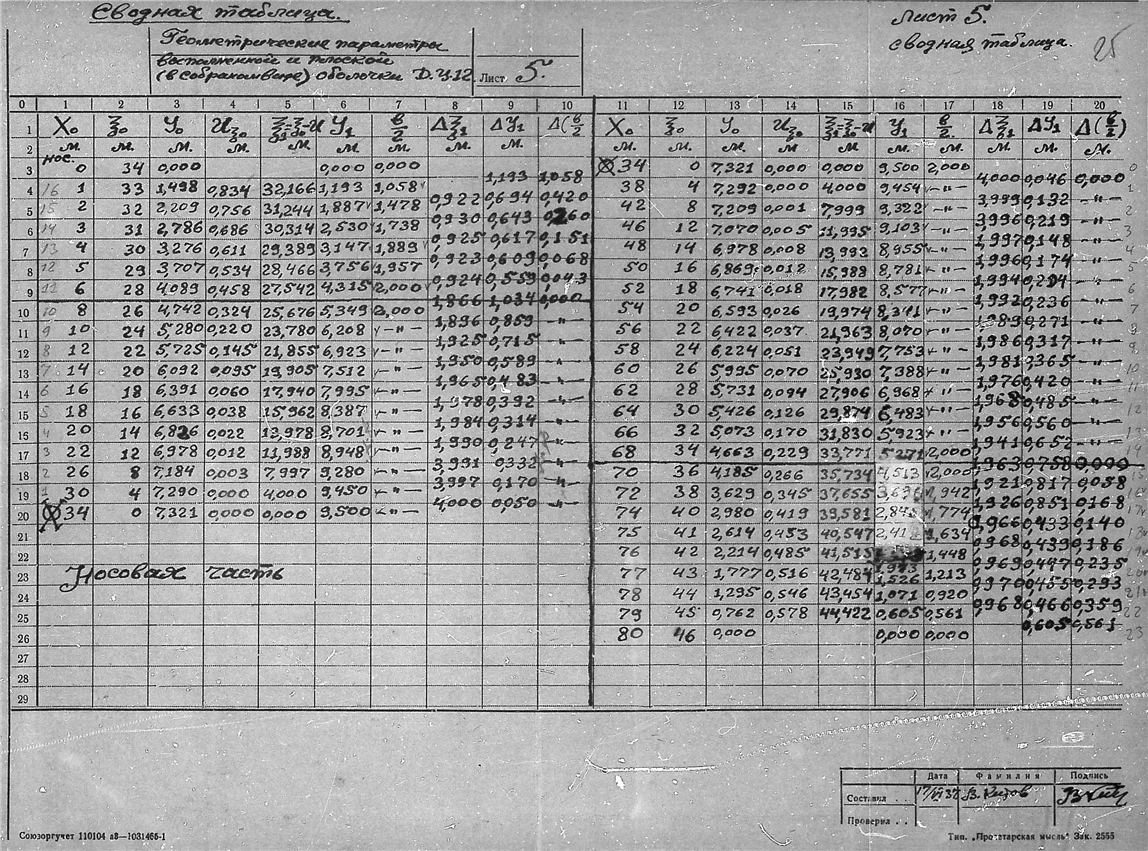 Сводная таблица.
Лист 5.
сводная таблица.
25
Геометрические параметры
выполненной и плоской
(в собраном виде) оболочки Д.Ц.12
Лист 5.
0 1 2 3 4 5 6 7 8 9 10 11 12 13 14 15 16 17 18 19 20
1 X₀ ξ₀ У₀ Иξ₀ ξ₁=ξ₀-И У₁ в/2 Δξ₁ ΔУ₁ Δ(в/2 X₀ ξ₀ У₀ Иξ₀ ξ₁=ξ₀-И У₁ в/2. Δξ₁ ΔУ₁ Δ(в/2
2 м. м. м. м. м. м. м. м. м. м. м. м. м. м. м. м. м. м. м. м.
нос.
3 0 34 0,000 0,000 0,000 34 0 7,321 0,000 0,000 9,500 2,000
1,193 1,058 4,000 0,046 0,000
4 16 1 33 1,498 0,834 32,166 1,193 1,058 38 4 7,292 0,000 4,000 9,454 -"-
0,922 0,694 0,420 3,999 0,132 -"-
5 15 2 32 2,209 0,756 31,244 1,887 1,478 42 8 7,209 0,001 7,999 9,322 -"-
0,930 0,643 0,260 3,996 0,219 -"-
6 14 3 31 2,786 0,686 30,314 2,530 1,738 46 12 7,070 0,005 11,995 9,103 -"-
0,925 0,617 0,151 1,997 0,148 -"-
7 13 4 30 3,276 0,611 29,389 3,147 1,889 48 14 6,978 0,008 13,993 8,955 -"-
0,923 0,609 0,068 1,996 0,174 -"-
8 12 5 29 3,707 0,534 28,466 3,756 1,957 50 16 6,869 0,012 15,988 8,781 -"-
0,924 0,559 0,043 1,994 0,204 -"-
9 11 6 28 4,089 0,458 27,542 4,315 2,000 52 18 6,741 0,018 17,982 8,577 -"-
1,866 1,034 0,000 1,992 0,236 -"-
10 10 8 26 4,742 0,324 25,676 5,349 2,000 54 20 6,593 0,026 19,974 8,341 -"-
1,896 0,859 -"- 1,989 0,271 -"-
11 9 10 24 5,280 0,220 23,780 6,208 -"- 56 22 6,422 0,037 21,963 8,070 -"-
1,925 0,715 -"- 1,986 0,317 -"-
12 8 12 22 5,725 0,145 21,855 6,923 -"- 58 24 6,224 0,051 23,949 7,753 -"-
1,950 0,589 -"- 1,981 0,365 -"-
13 7 14 20 6,092 0,095 19,905 7,512 -"- 60 26 5,995 0,070 25,930 7,388 -"-
1,965 0,483 -"- 1,976 0,420 -"-
14 6 16 18 6,391 0,060 17,940 7,995 -"- 62 28 5,731 0,094 27,906 6,968 -"-
1,978 0,392 -"- 1,968 0,485 -"-
15 5 18 16 6,633 0,038 15,962 8,387 -"- 64 30 5,426 0,126 29,874 6,483 -"-
1,984 0,314 -"- 1,956 0,560 -"-
15 4 20 14 6,826 0,022 13,978 8,701 -"- 66 32 5,073 0,170 31,830 5,923 -"-
1,990 0,247 -"- 1,941 0,652 -"-
17 3 22 12 6,978 0,012 11,988 8,948 -"- 68 34 4,663 0,229 33,771 5,271 2,000
3,991 0332 -"- 1,963 0,758 0,000
18 2 26 8 7,184 0,003 7,997 9,280 -"- 70 36 4,185 0,266 35,734 4,513 2,000
3,997 0,170 -"- 1,921 0,817 0,058
19 1 30 4 7,290 0,000 4,000 9,450 -"- 72 38 3,629 0,345 37,655 3,696 1,942
4,000 0,050 -"- 1,926 0,851 0,168
20 34 0 7,321 0,000 0,000 9,500 -"- 74 40 2,980 0,419 39,581 2,845 1,774
0,966 0,433 0,140
21 75 41 2,614 0,453 40,547 2,412 1,634
0,968 0,439 0,186
22 76 42 2,214 0,485 41,515 1,973 1,448
0,969 0,447 0,235
23 Носовая часть 77 43 1,777 0,516 42,484 1,526 1,213
0,970 0,455 0,293
24 78 44 1,295 0,546 43,454 1,071 0,920
0,968 0,466 0,359
25 79 45 0,762 0,578 44,422 0,605 0,561
0,605 0,561
26 80 46 0,000 0,000 0,000
27
28
29
Дата Фамилия Подпись
Составил . . 17/VI 37 В. Китов
Проверил . .
Союзоргучет 110104 а8—1031466-1
Тип. „Пролетарская мысль" Зак. 2555